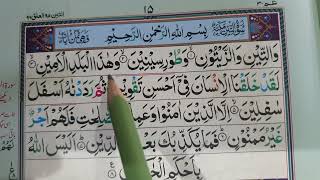 ١٥
بِسْمِ اللّٰهِ الرَّحْمٰنِ الرَّحِيْمِ
وَالتِّيْنِ وَالزَّيْتُوْنِ ۙ وَطُوْرِ سِيْنِيْنَ ۙ وَهٰذَا الْبَلَدِ الْاَمِيْنِ ۙ
لَقَدْ خَلَقْنَا الْاِنْسَانَ فِيْٓ اَحْسَنِ تَقْوِيْمٍ ثُمَّ رَدَدْنٰهُ اَسْفَلَ
سٰفِلِيْنَ ۙ اِلَّا الَّذِيْنَ اٰمَنُوْا وَعَمِلُوا الصّٰلِحٰتِ فَلَهُمْ اَجْرٌ
غَيْرُ مَمْنُوْنٍ ؕ فَمَا يُكَذِّبُكَ بَعْدُ بِالدِّيْنِ ؕ اَلَيْسَ اللّٰهُ
بِاَحْكَمِ